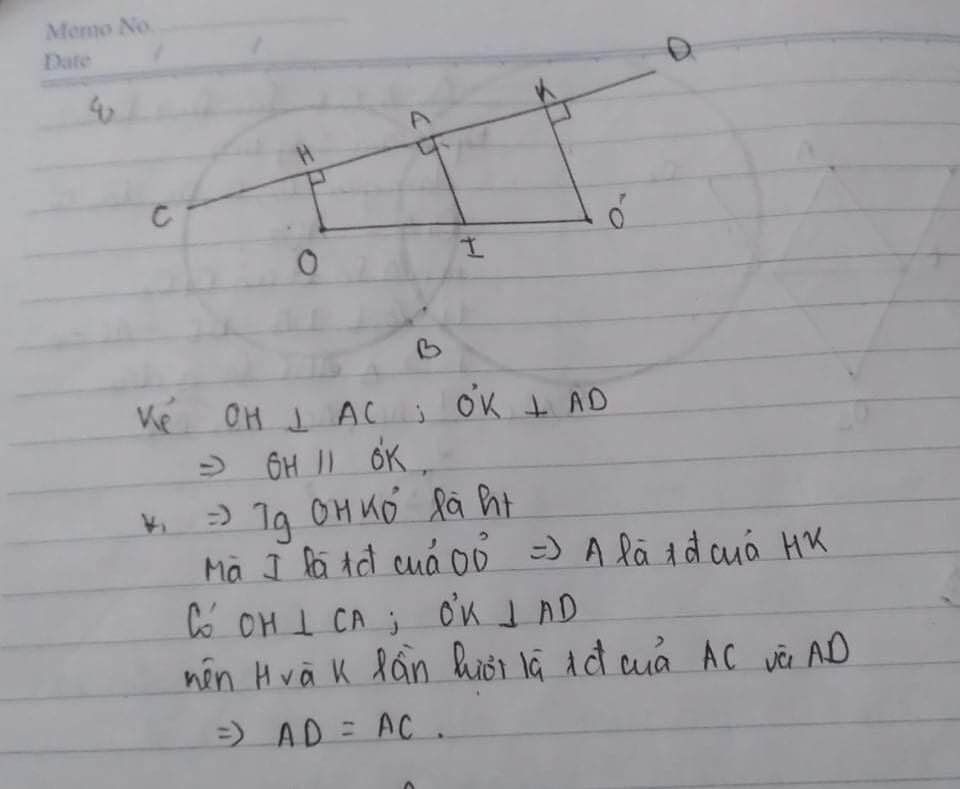 Memo No.
Date / /
4)
D
K
A
H
C
O
I
O'
B
Kẻ OH ⊥ AC ; O'K ⊥ AD
=> OH // O'K.
=> Tg OHKO' là ht
Mà I là tđ của OO' => A là tđ của HK
Có OH ⊥ CA ; O'K ⊥ AD
nên H và K lần lượt là tđ của AC và AD
=> AD = AC .